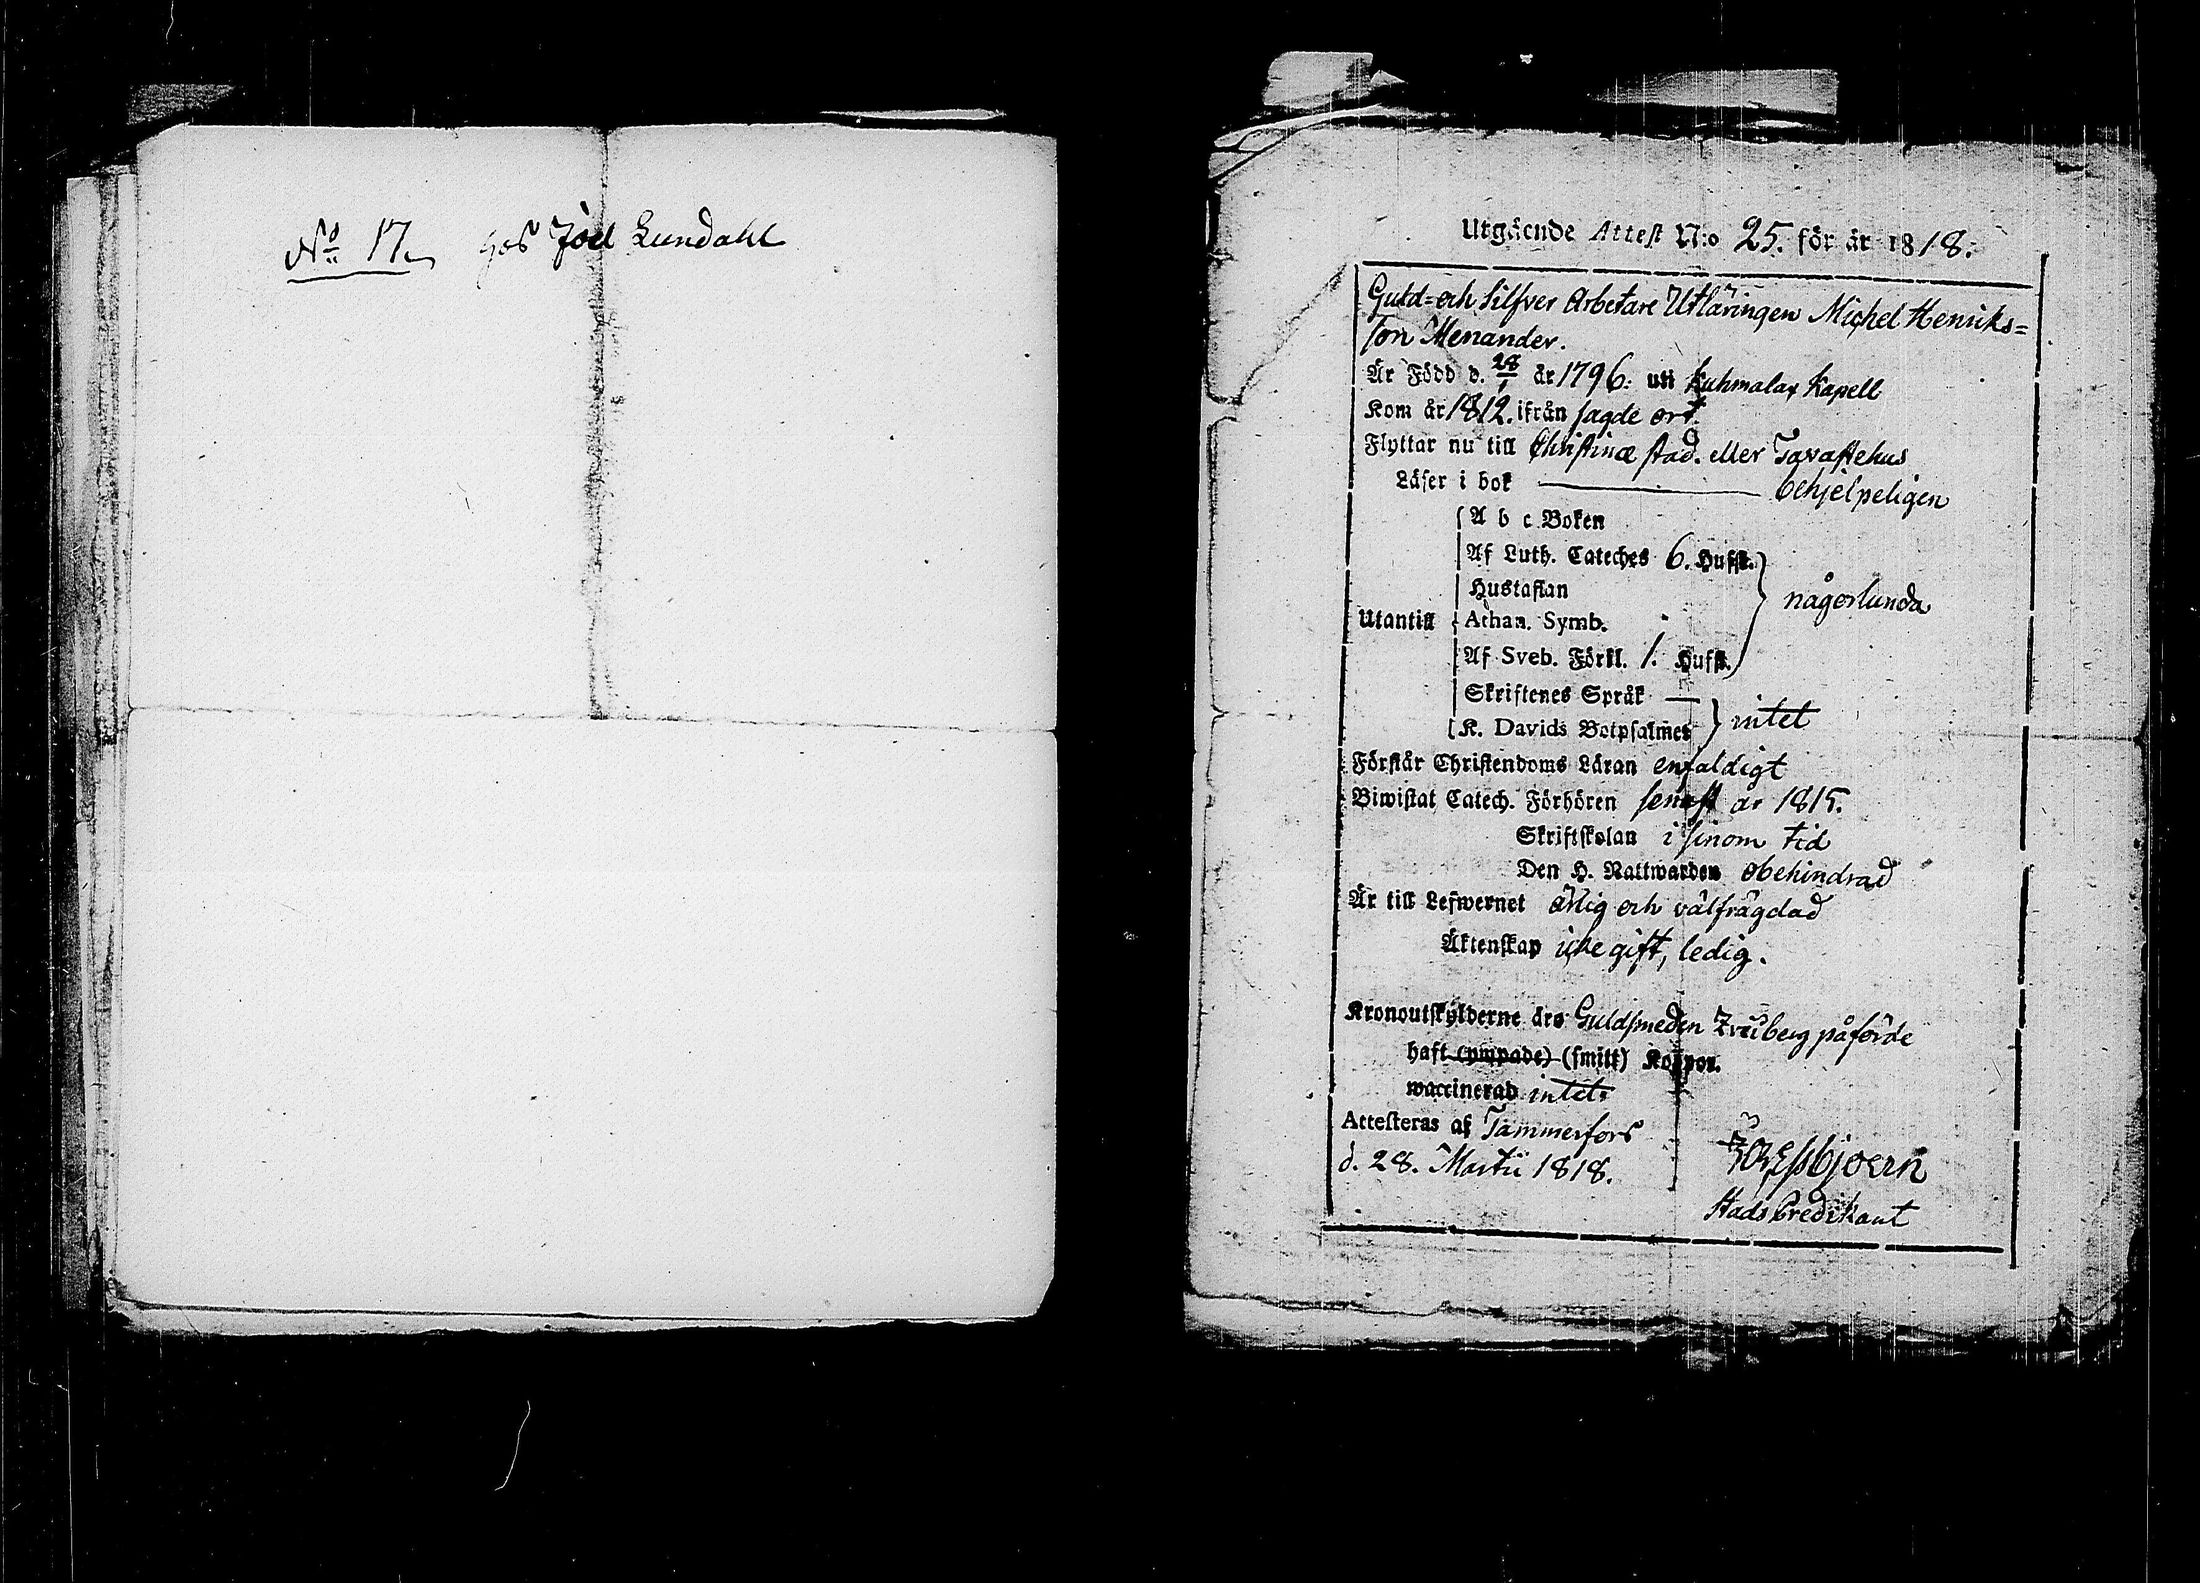 No 17. hos Joel Lundahl
Utgående Attest N:o 25. för år 1818.
Guld= och Silfver Arbetare Utläringen Michel Henriks=
son Menander.
Är Född d. 28/1 år 1796. uti Kuhmalax Kapell
Kom år 1812. ifrån sagde ort.
Flyttar nu till Christinæ stad. eller Tavastehus
Läser i bok behjelpeligen
A b c Boken
Af Luth. Cateches 6. Hufst.
Hustaflan
någorlunda
Utantill Athan. Symb.
Af Sveb. Förkl. 1. Hufst.
Skriftenes Språk —
K. Davids Botpsalmer intet
Förstår Christendoms Läran enfaldigt
Biwistat Catech. Förhören senast år 1815.
Skriftskolan i sinom tid
Den H. Nattwarden obehindrad
Är till Lefwernet ärlig och välfrägdad
Äktenskap icke gift, ledig.
Kronoutskylderne äro Guldsmeden påförde
haft (ympade) (smitt) Koppor.
waccinerad intet.
Attesteras af Tammerfors
d. 28. Martii 1818.
Essbjoern
Stads Predikant